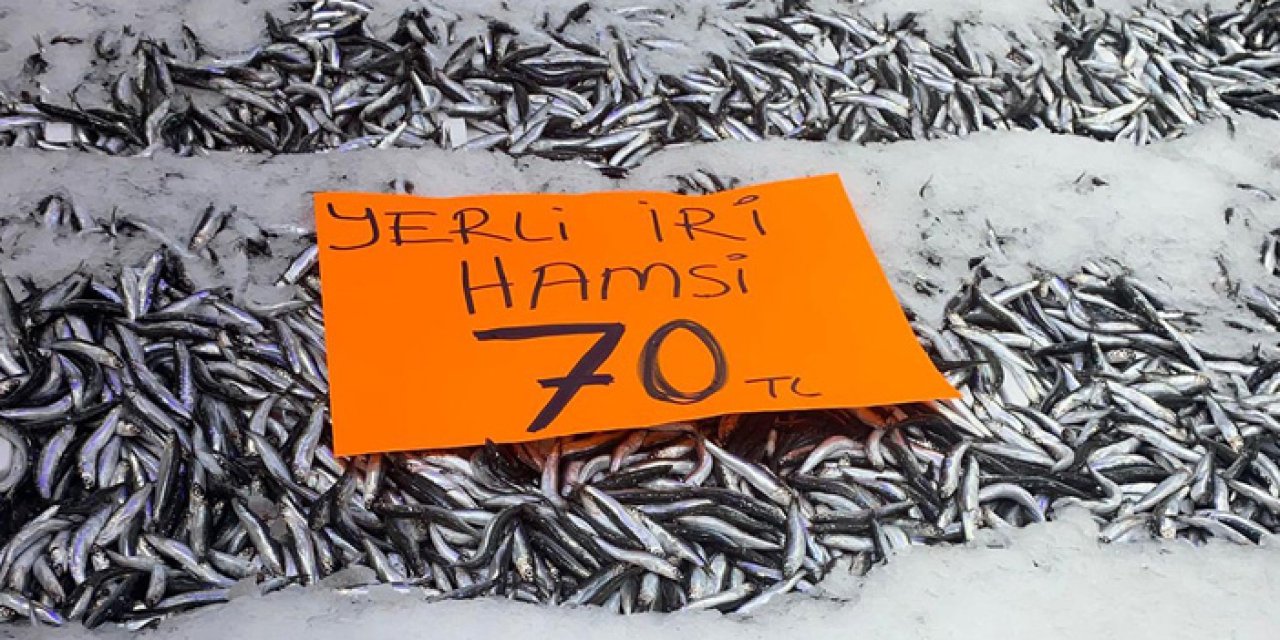 YERLİ İRİ
HAMSİ
70 TL